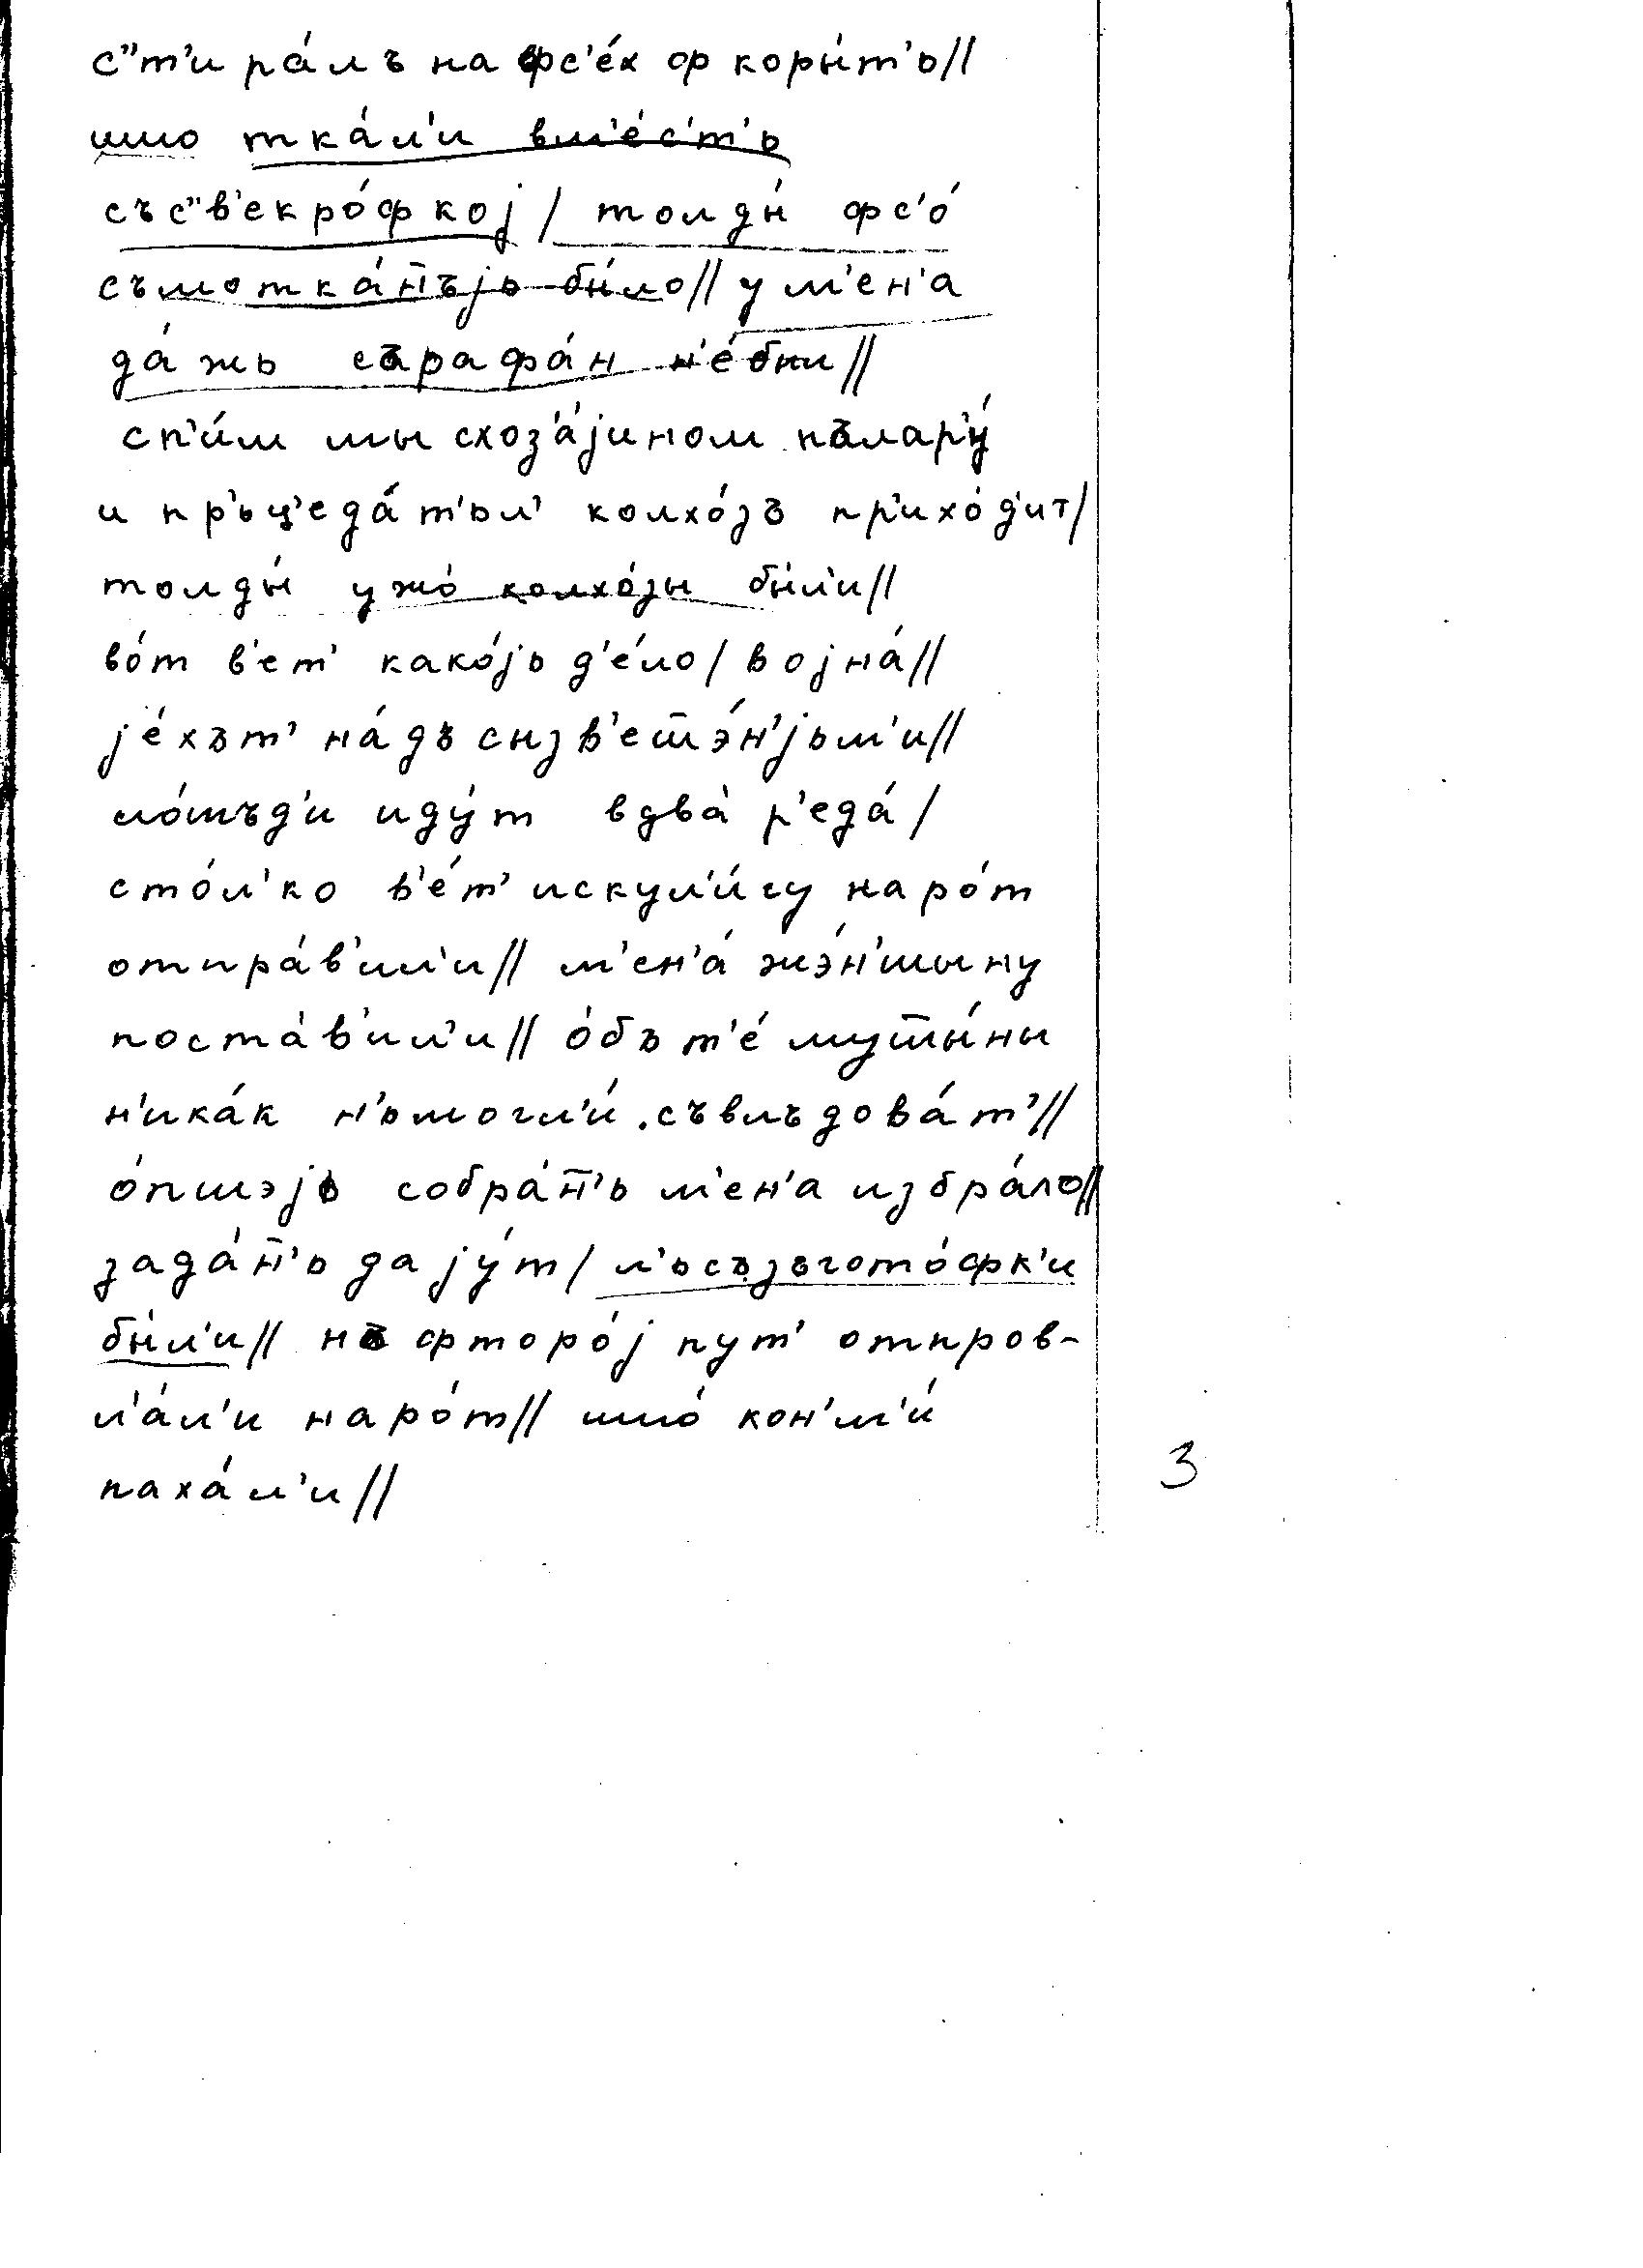 с"т'ира́лъ на фс'е́х ф коры́т'ь//
што тка́л'и вм'е́с'т'ь
със"в'екро́фкој / толды́ фс'о́
съмотка́н̄ъјь бы́ло// у м'ен'а
да́жь сърафа́н н'е́был//
сп'и́м мы схоз'а́јином пълар'у́
и пр'ьц'еда́т'ьл' колхо́зъ пр'ихо́д'ит/
толды́ ужо́ колхо́зы бы́л'и//
во́т в'ет' како́јь д'е́ло/ војна́//
је́хът' на́дъ сызв'ет̄э́н'јьм'и//
ло́шъд'и иду́т вдва́ р'еда́/
сто́л'ко в'е́т' искул'и́гу наро́т
отпра́в'ил'и// м'ен'а́ жэ́н'шыну
поста́в'ил'и// о́бъ т'е́ мут̄ы́ны
н'ика́к н'ьмогл'и́ съвлъдова́т'//
о́пшэјь собра́н̄'ь м'ен'а избра́ло//
зада́н̄'ь дају́т/ л'ьсъзъгото́фк'и
бы́л'и// нъ фторо́ј пут' отпров-
л'а́л'и наро́т// што́ кон'м'и́
паха́л'и//
3